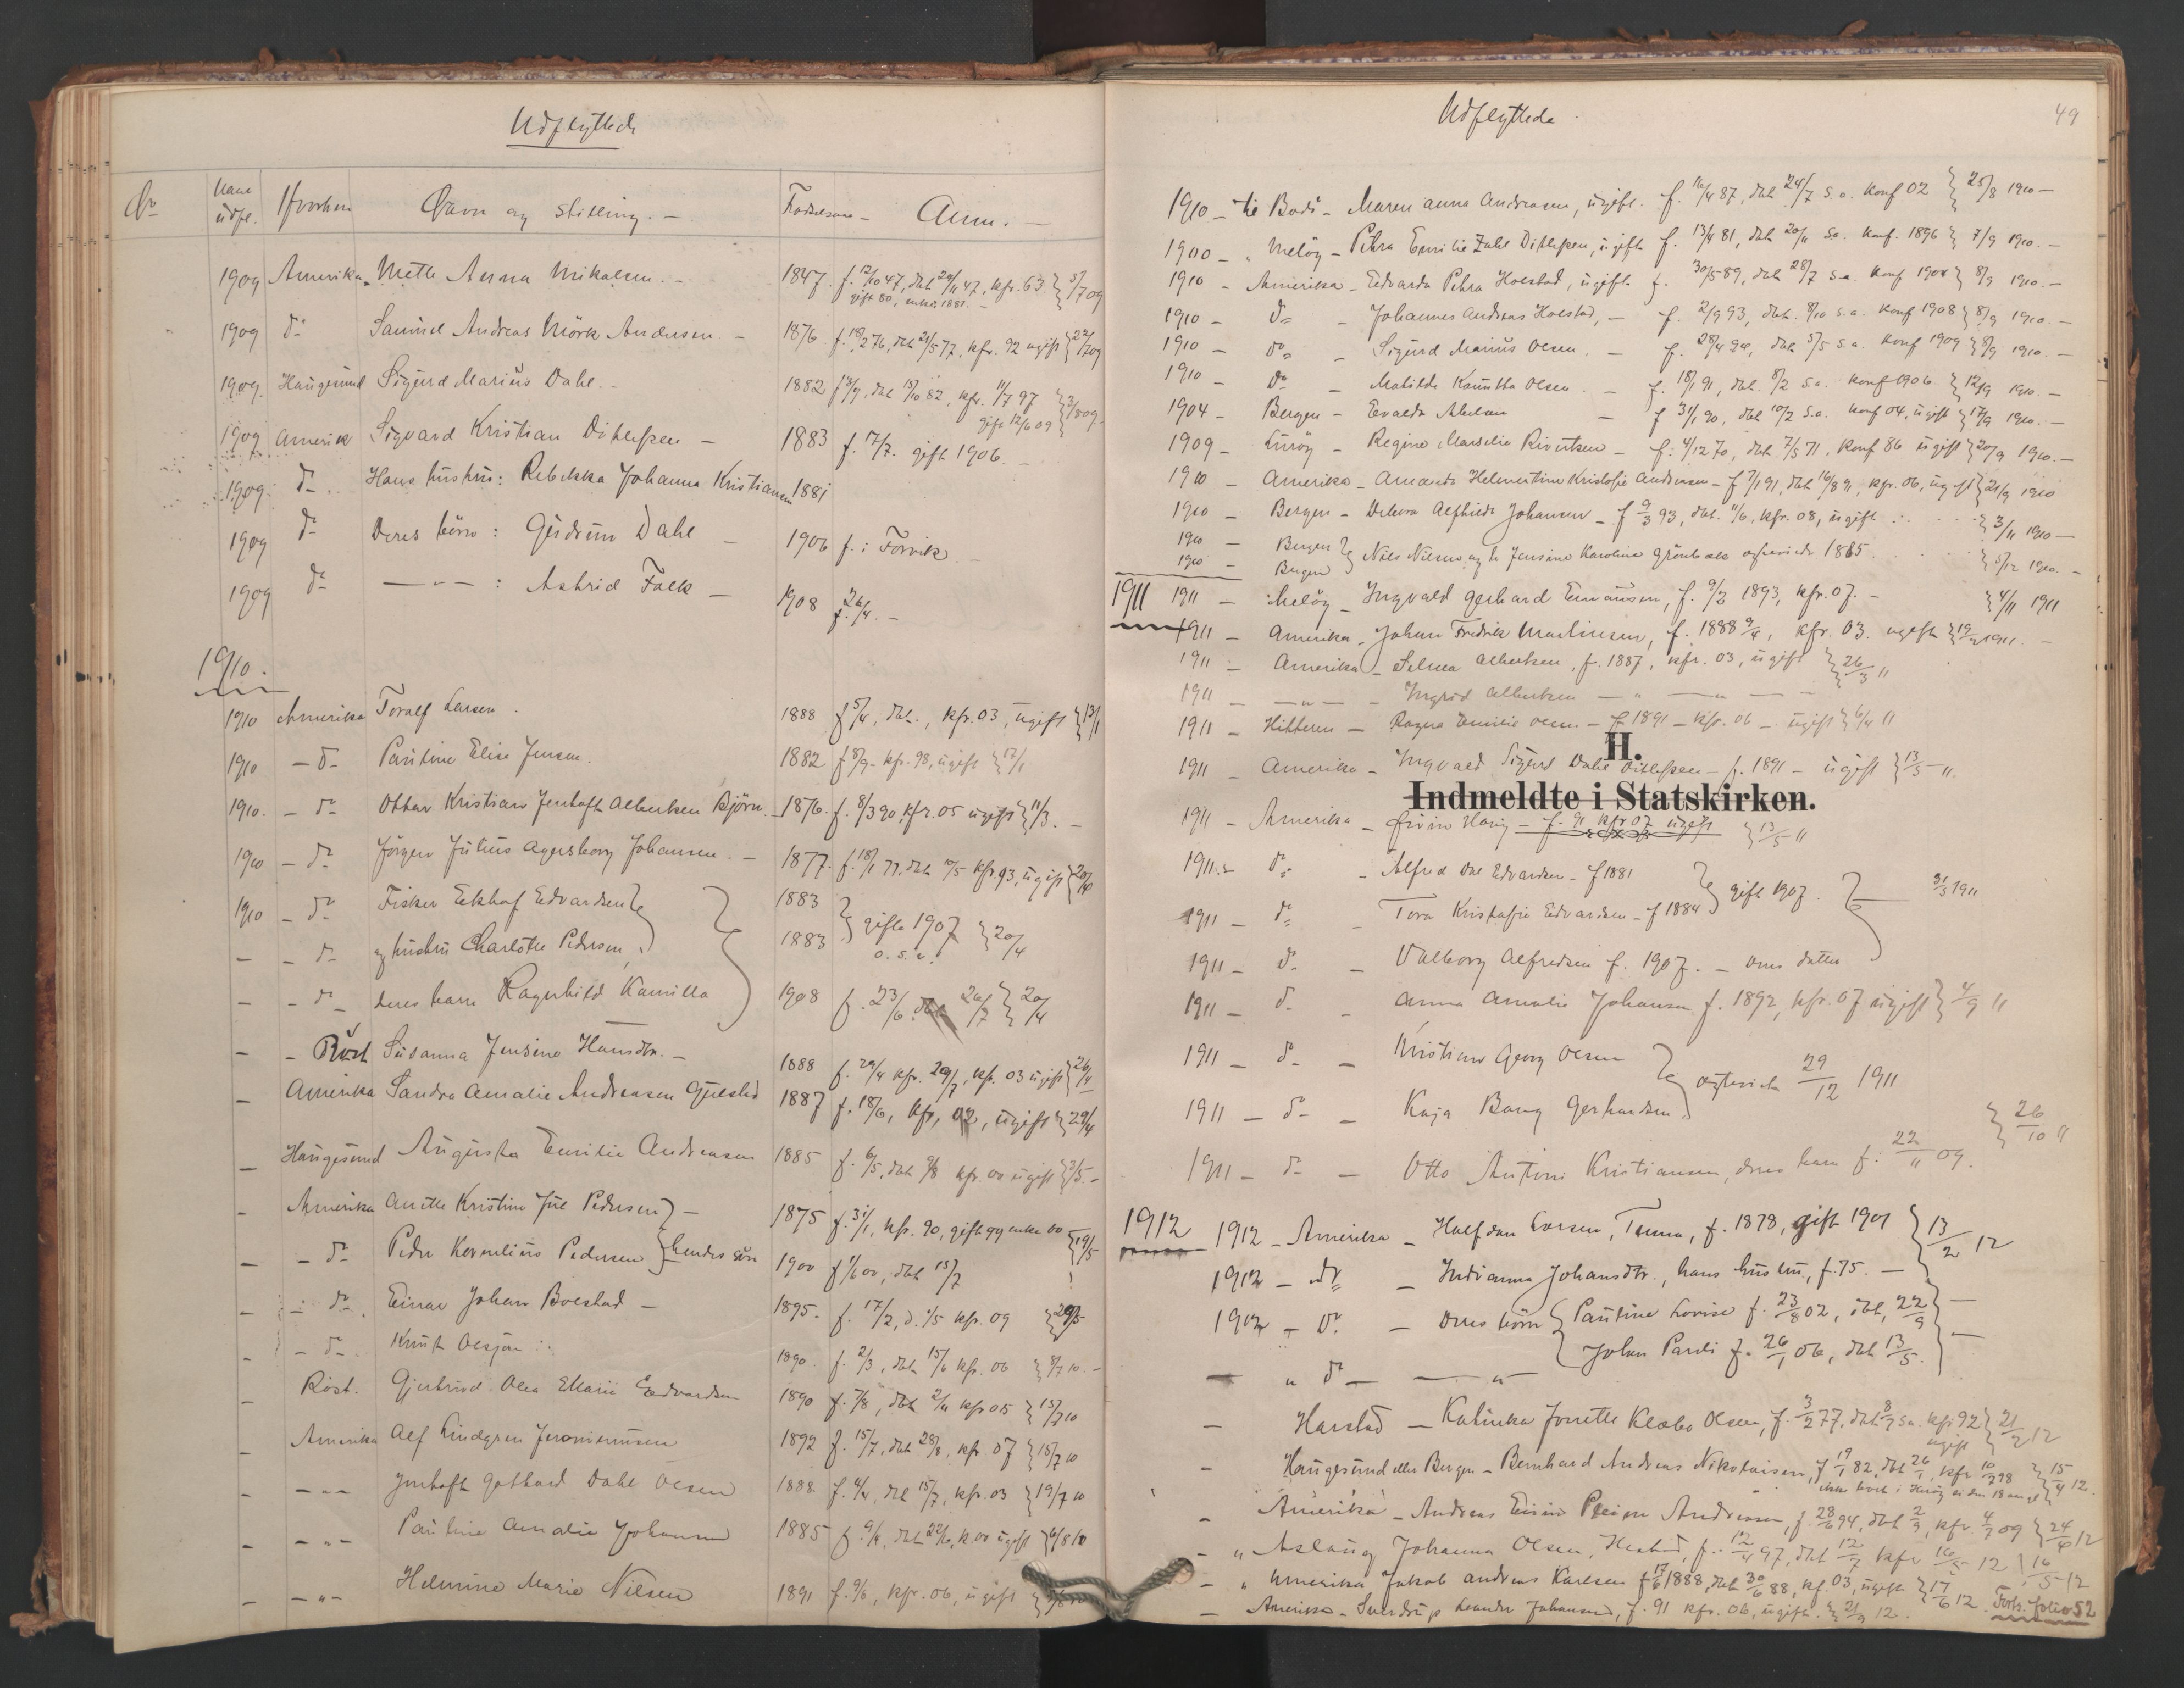 Udflyttede
No
Naar udfl.
Hvorhen
Navn og stilling. -
Fødselsaar -
Anm. -
1909 Amerika Mette Anna Mikalsen. - 1847. f. 12/10 47, døbt 29/11 47, kfr. 63
gift 80, enke 1881. -
1909 do Samuel Andreas Mörk Andersen. - 1876. kfr. 92 ugift
1909. Haugesund Sigurd Marius Dahl. - 1882 kfr. 11/7 97
gift 12/6 09
1909 Amerik Sigvard Kristian Ditlefsen - 1883 f. 17/7. gift 1906. -
1909. do Hans hustru: Rebekka Johanna Kristiansen 1881
1909 do Deres börn: Gudrun Dahl - 1906 f. i Forvik. -
1909 do — " — : Astrid Falk - 1908 f. 26/4. -
1910.
1910 Amerika Toralf Larsen. 1888 f 5/4, døbt., kfr. 03, ugift } 13/1
1910 - do Pauline Elise Jensen. 1882 f 8/9 - kfr. 98, ugift } 17/1
1910. - do Ottar Kristian Jentoft Albertsen Björn. - 1876. f. 8/3 90, kfr. 05 ugift } 11/3. -
1910 - do Jörgen Julius Agersborg Johansen. - 1877. f. 18/1 77, døbt 10/5 kfr. 93, ugift
1910 - do Fisker Ekhof Edvardsen 1883
- - do og hustru Charlotte Pedersen, 1883 gifte 1907 } 20/4
o. s. v.
- - do deres barn Ragnhild Kamilla 1908 f. 23/6 20/4
- - Röst Susanna Jensine Hansdtr. - 1888 kfr. 03 ugift
- Amerika Sandra Amalie Andreasen 1887 f. 18/6, kfr. 02, ugift } 29/4
- Haugesund Augusta Emilie Andreasen 1885 f. 6/5, døbt 9/8 kfr. 00 ugift
- Amerika Anette Kristine Jul Pedersen - 1875 f. 31/1, kfr. 90, gift 99 enke 00 } 19/5
- - do Peder Kornelius Pedersen } hendes sön 1900 døbt 15/7
- - do. Einar Johan Bolstad - 1895. f. 17/2, d. 1/5 kfr. 09
- - do - Knut Olsjon 1890. f. 2/3, døbt 15/6 kfr. 06 } 8/7 10. -
- Röst. Gjertrud Olea Edvardsen 1890 f. 7/8 } 15/7 10
- Amerika Alf Lindgren Jeronimusen 1892 f. 15/7, døbt 28/8, kfr. 07 } 15/7 10
- - " - Jentoft Gothard Dahl Olsen 1888. døbt 15/7, kfr. 03 } 19/7 10
- - " - Pauline Amalie Johansen 1885 ugift } 6/8 10
- - " - Helmine Marie Nilsen 1891 f. 9/6, kfr. 06, ugift
Udflyttede
49
1910 - til Bodö - Maren Anna Andreasen, ugift. f. 16/4 87, døbt 24/7 s.a. konf 02 } 25/8 1910 -
1910 - " Melöy - Petra Emilie Zahl Ditlefsen, ugift f. 13/4 81, døbt 20/11 s.a. konf. 1896 } 7/9 1910. -
1910 - Amerika - Edvarda Petra Holstad, ugift f. 30/5 89, døbt 28/7 s.a. konf 1904 } 8/9 1910. -
1910 - do - Johannes Andreas Holstad, - f. 2/9 93, døbt. 8/10 s.a. konf 1908 } 8/9 1910. -
1910 - do - Sigurd Marius Olsen. - f. 28/4 94, døbt 5/5 s.a. konf 1909 } 8/9 1910. -
1910 - do - Matilde Kanutta Olsen. - f. 18/1 91, døbt. 8/2 s.a. konf 1906 } 12/9 1910. -
1904 - Bergen - Evalda Abelsen - f 31/1 90, døbt 10/2 s.a. konf 04, ugift } 17/9 1910. -
1909 - Luröy - Regine Marselie - f: 4/12 70, døbt 7/5 71, konf 86 ugift } 20/9 1910. -
1910 - Amerika - Amanda Kristofie Andersen - f 7/1 91, døbt 16/8 91, kfr. 06, ugift } 21/9 1910
1910 - Bergen - Debora Alfhilde Johansen - f 9/3 93, døbt. 11/6, kfr. 08, ugift } 3/11 1910 -
1910 - Bergen
1910 - Bergen } Nils Nilsen og h. Jensine Karoline Grönbæk ægteviede 1885. } 5/12 1910. -
1911 1911 - Melöy - Ingvald Gerhard Emausen, f. 9/2 1893, kfr. 07. - } 4/11 1911
1911 - Amerika - Johan Fredrik Martinsen, f. 1888 9/4, kfr. 03. ugift
1911 - Amerika - Selma Albertsen, f. 1887, kfr. 03, ugift } 26/3 "
1911 - — " — - Ingrid Albertsen — " — " — "
1911 - Hitteren - Ragna Emilie Olsen. - f 1891 - kfr. 06 - ugift } 6/4 "
1911 - Amerika - Ingvald Sigurd Dahl Ditlefsen - f. 1891 - ugift } 13/5 - ".
H.
Indmeldte i Statskirken.
1911 - Amerika - f. 91 kfr 07 ugift } 13/5 "
1911. - do - Alfred Edvardsen - f 1881
1911 - do - Tora Kristofie Edvardsen - f 1884 } gift 1907. 1911
1911 - do - Valborg Alfredsen f. 1907. - deres datter
1911 - do - Anna Amalie Johansen f. 1892, kfr. 07 ugift } 4/9 "
1911 - do - Kristian Georg Olsen
1911 - do - Kaja Bang Gerhardsen. } ægteviede 29/12 1911
1911 - do - Otto Antoni Kristiansen, deres barn f. 22/11 09. } 26/10 "
1912 1912 - Amerika - Halfdan Larsen, Tenna, f. 1878, gift 1901 } 13/2 12
1912 - do - Indianna Johansdtr., hans hustru, f. 75. -
1912 - do. - Deres börn { Pauline Lovise f. 23/8 02, døbt, 22/9 } -
Johan Pareli f. 26/1 06, døbt 13/5. -
- " do — — " —
- Harstad - Kalinka Jonette Klæbo Olsen, f. 3/2 77, døbt 8/7 s.a. kfr 92 } 21/2 12
ugift
- Haugesund eller Bergen - Bernhard Andreas Nikolaisen, f 19/1 82, døbt 26/1, kfr 10/7 98 } 15/4 12.
- Amerika - Andreas Andreasen, f. 28/6 94, døbt 2/9, kfr. 4/7 09 } 24/4 12
- " Aslaug Johanna Olsen, f. 12/4 97, døbt 12/7 kfr 16/5 12 } 16/5 12
- " Amerika, Jakob Andreas Karlsen f 17/6 1888, døbt 30/6 88, kf. 03, ugift } 17/6 12.
- Amerika - Sverdrup Leander Johansen, f. 91 kfr. 06, ugift. 12.
Forts. folio 52